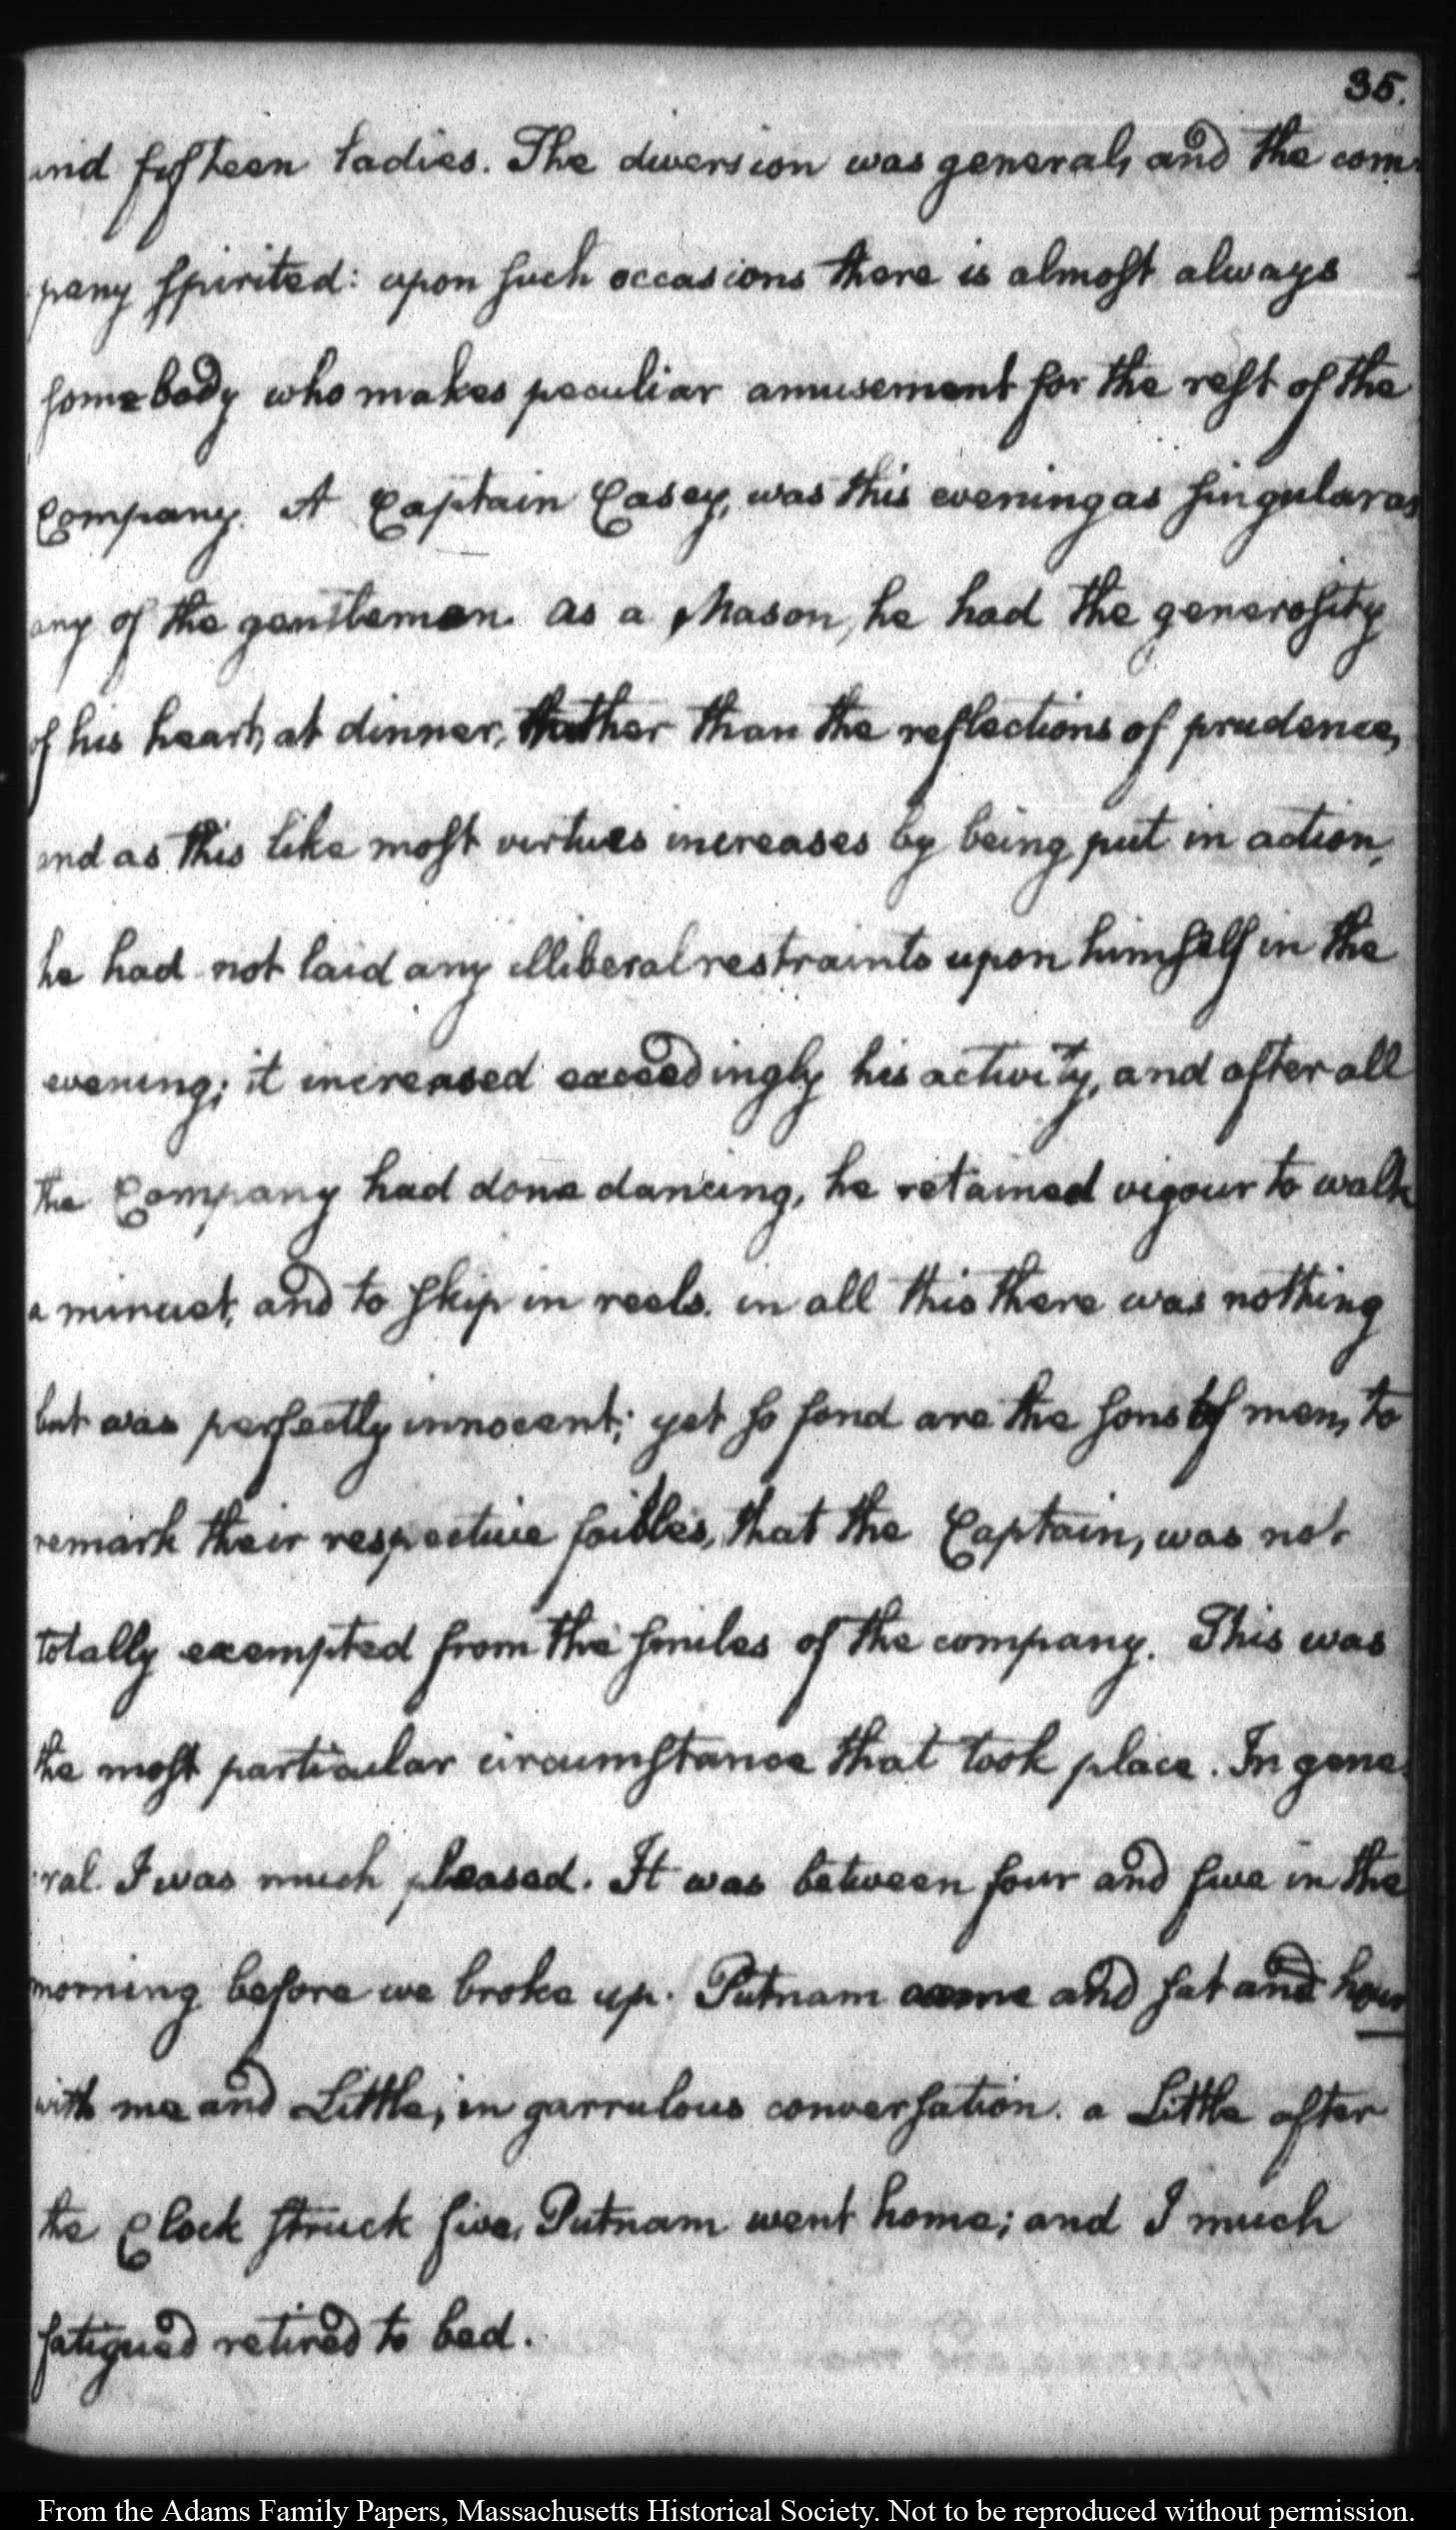 35.
and fifteen ladies. The diversion was general, and the com-
pany spirited: upon such occasions there is almost always
somebody who makes peculiar amusement for the rest of the
Company. A Captain Casey, was this evening as singular as
any of the gentlemen. as a Mason, he had the generosity
of his heart, at dinner, rather than the reflections of prudence,
and as this like most virtues increases by being put in action,
he had not laid any illiberal restraints upon himself in the
evening; it increased exceedingly his activity, and after all
the Company had done dancing, he retained vigour to walk
a minuet, and to skip in reels. in all this there was nothing
but was perfectly innocent; yet so fond are the sons of men, to
remark their respective foibles, that the Captain, was not
totally exempted from the smiles of the company. This was
the most particular circumstance that took place. In gene-
ral I was much pleased. It was between four and five in the
morning before we broke up. Putnam came and sat and hour
with me and Little, in garrulous conversation. a Little after
the Clock struck five, Putnam went home; and I much
fatigued retired to bed.
From the Adams Family Papers, Massachusetts Historical Society. Not to be reproduced without permission.